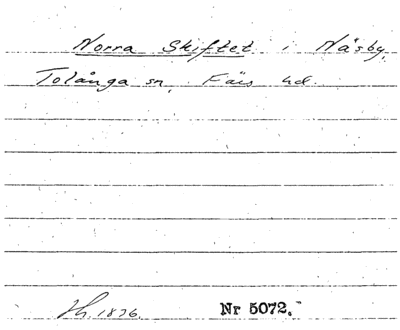 Norra Skiftet i Näsby,
Tolånga sn, Färs hd.
Th. 1826. Nr 5072.